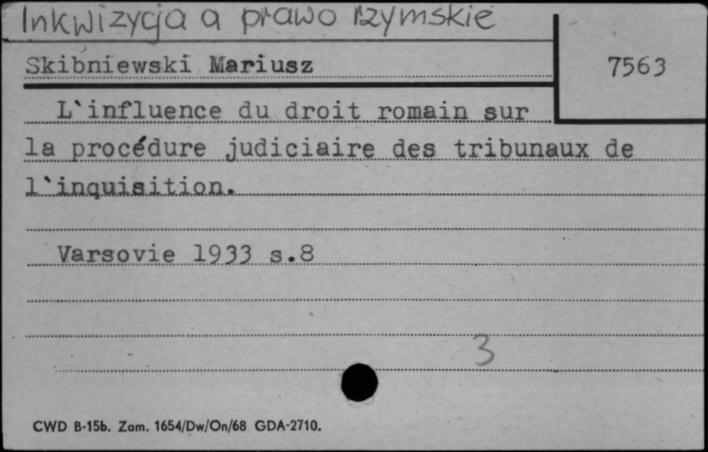 Inkwizycja a prawo rzymskie
Skibniewski Mariusz
7563
L`influence du droit romain sur
la procédure judiciaire des tribunaux de
l`inquisition.
Varsovie 1933 s.8
3
CWD B-15b. Zam. 1654/Dw/On/68 GDA-2710.